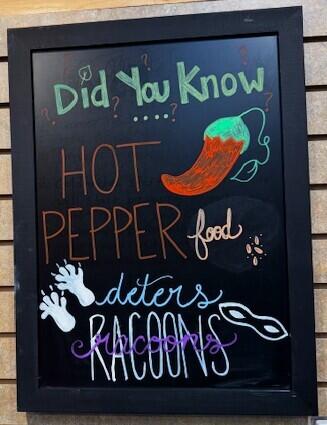 Did You Know
....
HOT
PEPPER food
deters
RACOONS
racoons